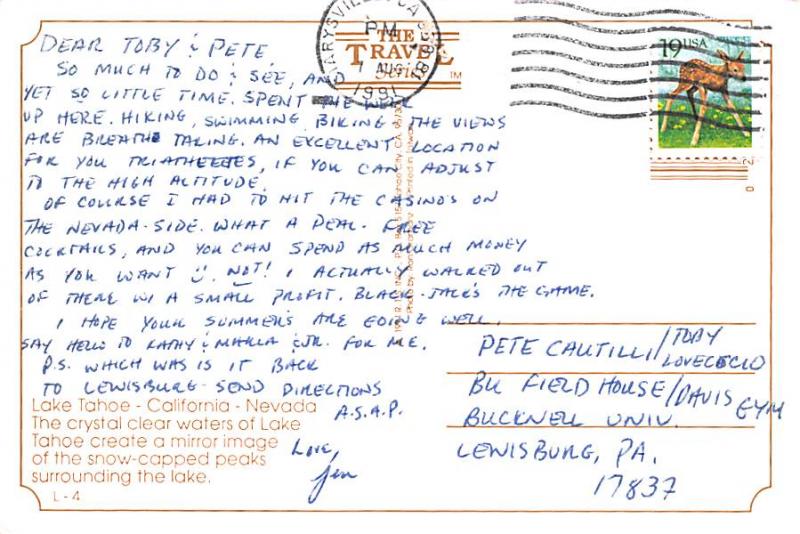 MARYSVILLE, CA
PM
AUG
1991
THE
TRAVEL
Series
TM
19 USA
DEAR TOBY & PETE
SO MUCH TO DO & SEE, AND
YET SO LITTLE TIME. SPENT THE WEEK
UP HERE. HIKING, SWIMMING, BIKING THE VIEWS
ARE BREATHE TAKING. AN EXCELLENT LOCATION
FOR YOU TRIATHELETES, IF YOU CAN ADJUST
TO THE HIGH ALTITUDE.
OF COURSE I HAD TO HIT THE CASINOS ON
THE NEVADA-SIDE. WHAT A DEAL. FREE
COCKTAILS, AND YOU CAN SPEND AS MUCH MONEY
AS YOU WANT NOT! I ACTUALLY WALKED OUT
OF THERE W/ A SMALL PROFIT. BLACK-JACK'S THE GAME.
I HOPE YOUR SUMMERS ARE GOING WELL.
SAY HELLO TO KATHY & MARLA & JR. FOR ME.
P.S. WHICH WAS IS IT BACK
TO LEWISBURG-SEND DIRECTIONS
A.S.A.P.
Love,
Jen
PETE CAUTILLI/TOBY
LOVECECIO
BU FIELD HOUSE/DAVIS GYM
BUCKNELL UNIV.
LEWISBURG, PA.
17837
Lake Tahoe - California - Nevada
The crystal clear waters of Lake
Tahoe create a mirror image
of the snow-capped peaks
surrounding the lake.
L-4